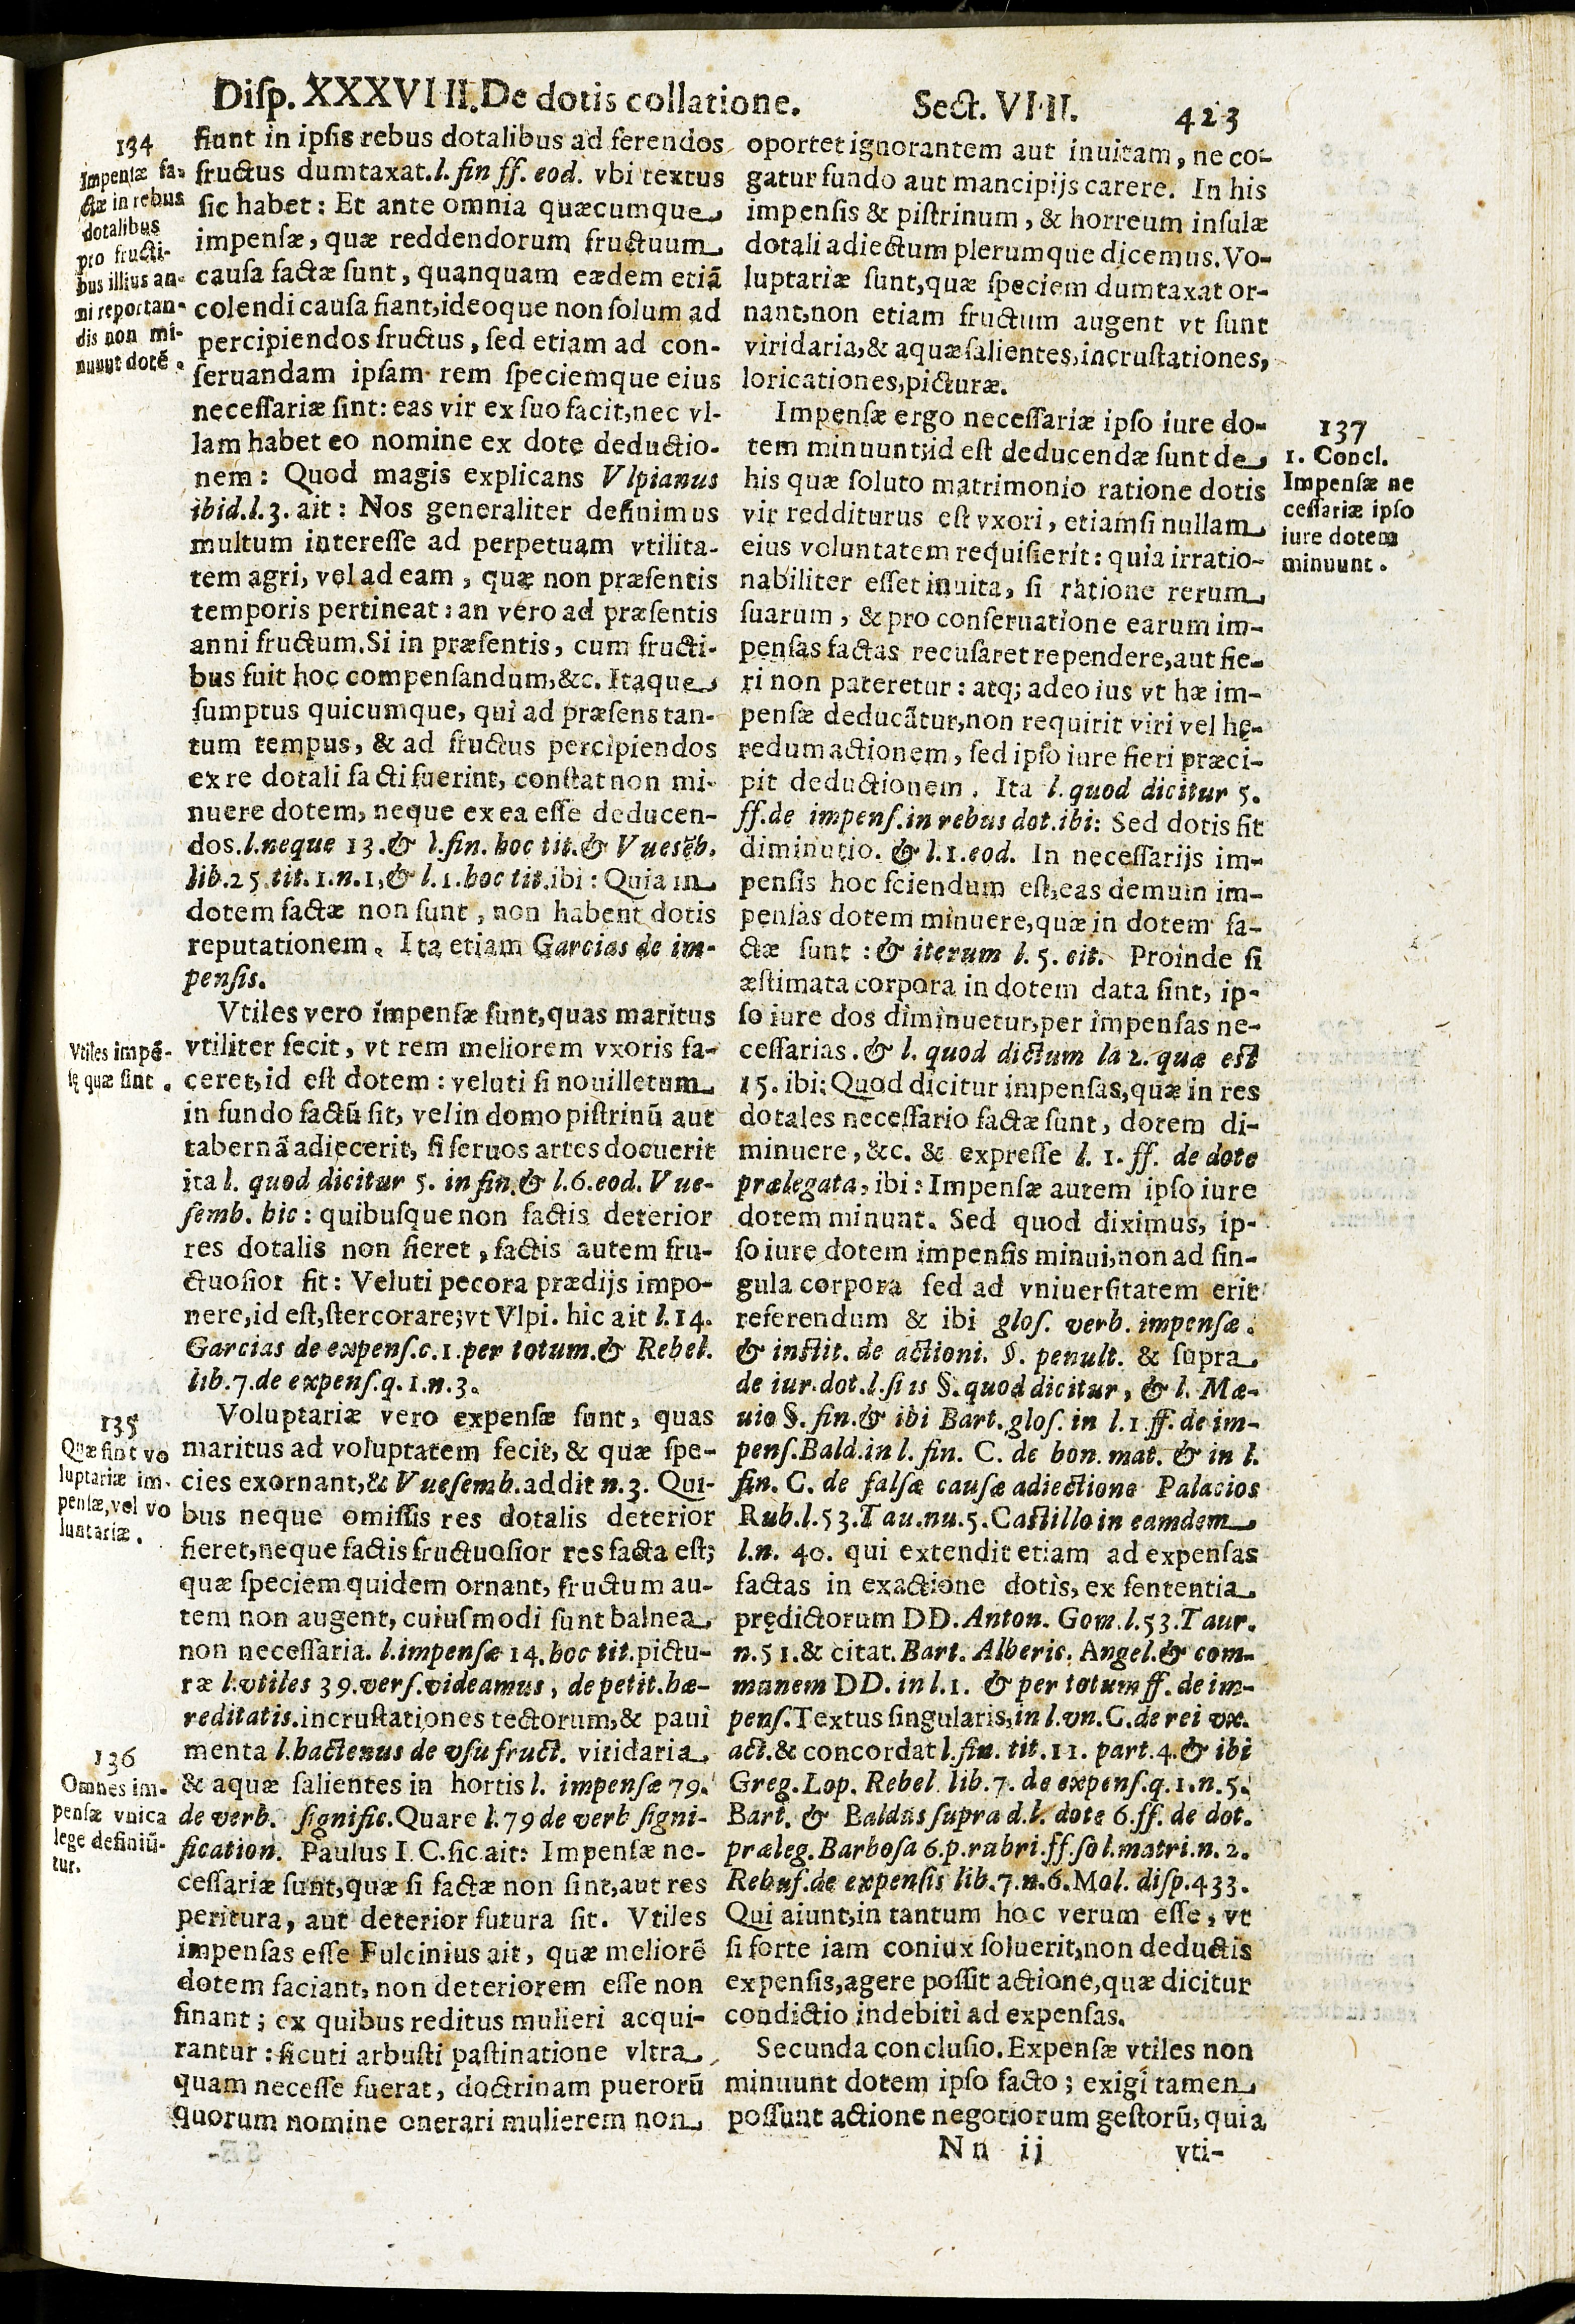 Disp. XXXVIIII. De dotis collatione. Sect. VIII. 423
134
Impensæ fa-
ctæ in rebus
dotalibus
pro fructi-
bus illius an-
ni reportan-
dis non mi-
nuunt dotē.
fiunt in ipsis rebus dotalibus ad ferendos
fructus dumtaxat. l. fin ff. eod. vbi textus
sic habet: Et ante omnia quæcumque
impensæ, quæ reddendorum fructuum
causa factæ sunt, quanquam eædem etiā
colendi causa fiant, ideoque non solum ad
percipiendos fructus, sed etiam ad con-
seruandam ipsam rem speciemque eius
necessariæ sint: eas vir ex suo facit, nec vl-
lam habet eo nomine ex dote deductio-
nem: Quod magis explicans Vlpianus
ibid. l. 3. ait: Nos generaliter definimus
multum interesse ad perpetuam vtilita-
tem agri, vel ad eam, quæ non præsentis
temporis pertineat: an vero ad præsentis
anni fructum. Si in præsentis, cum fructi-
bus fuit hoc compensandum, &c. Itaque
sumptus quicumque, qui ad præsens tan-
tum tempus, & ad fructus percipiendos
ex re dotali facti fuerint, constat non mi-
nuere dotem, neque ex ea esse deducen-
dos. l. neque 13. & l. fin. hoc tit. & Vuesēb.
lib. 25. tit. 1. n. 1, & l. 1. hoc tit. ibi: Quia in
dotem factæ non sunt, non habent dotis
reputationem. Ita etiam Garcias de im-
pensis.
Vtiles impē-
sę quæ sint.
Vtiles vero impensæ sunt, quas maritus
vtiliter fecit, vt rem meliorem vxoris fa-
ceret, id est dotem: veluti si nouilletum
in fundo factū sit, vel in domo pistrinū aut
tabernā adiecerit, si seruos artes docuerit
ita l. quod dicitur 5. in fin. & l. 6. eod. Vue-
semb. hic: quibusque non factis deterior
res dotalis non fieret, factis autem fru-
ctuosior fit: Veluti pecora prædijs impo-
nere, id est, stercorare; vt Vlpi. hic ait l. 14.
Garcias de expens. c. 1. per totum. & Rebel.
lib. 7. de expens. q. 1. n. 3.
135
Quæ sint vo
luptariæ im-
pensæ, vel vo
luntariæ.
Voluptariæ vero expensæ sunt, quas
maritus ad voluptatem fecit, & quæ spe-
cies exornant, & Vuesemb. addit n. 3. Qui-
bus neque omissis res dotalis deterior
fieret, neque factis fructuosior res facta est;
quæ speciem quidem ornant, fructum au-
tem non augent, cuiusmodi sunt balnea
non necessaria. l. impensæ 14. hoc tit. pictu-
ræ l. vtiles 39. vers. videamus, de petit. hæ-
reditatis. incrustationes tectorum, & paui
menta l. hactenus de vsufruct. viridaria
136
Omnes im-
pensæ vnica
lege definiū-
tur.
& aquæ salientes in hortis l. impensæ 79.
de verb. signific. Quare l. 79 de verb signi-
fication. Paulus I. C. sic ait: Impensæ ne-
cessariæ sunt, quæ si factæ non sint, aut res
peritura, aut deterior futura sit. Vtiles
impensas esse Fulcinius ait, quæ meliorē
dotem faciant, non deteriorem esse non
sinant; ex quibus reditus mulieri acqui-
rantur: sicuti arbusti pastinatione vltra
quam necesse fuerat, doctrinam puerorū
quorum nomine onerari mulierem non
oportet ignorantem aut inuitam, ne co-
gatur fundo aut mancipijs carere. In his
impensis & pistrinum, & horreum insulæ
dotali adiectum plerumque dicemus. Vo-
luptariæ sunt, quæ speciem dumtaxat or-
nant, non etiam fructum augent vt sunt
viridaria, & aquæ salientes, incrustationes,
loricationes, picturæ.
137
1. Concl.
Impensæ ne
cessariæ ipso
iure dotem
minuunt.
Impensæ ergo necessariæ ipso iure do-
tem minuunt; id est deducendæ sunt de
his quæ soluto matrimonio ratione dotis
vir redditurus est vxori, etiamsi nullam
eius voluntatem requisierit: quia irratio-
nabiliter esset inuita, si ratione rerum
suarum, & pro conseruatione earum im-
pensas factas recusaret rependere, aut fie-
ri non pateretur: atq; adeo ius vt hæ im-
pensæ deducātur, non requirit viri vel hę-
redum actionem, sed ipso iure fieri præci-
pit deductionem. Ita l. quod dicitur 5.
ff. de impens. in rebus dot. ibi: Sed dotis fit
diminutio. & l. 1. eod. In necessarijs im-
pensis hoc sciendum est, eas demum im-
pensas dotem minuere, quæ in dotem fa-
ctæ sunt: & iterum l. 5. cit. Proinde si
æstimata corpora in dotem data sint, ip-
so iure dos diminuetur, per impensas ne-
cessarias. & l. quod dictum la 2. quæ est
15. ibi: Quod dicitur impensas, quæ in res
dotales necessario factæ sunt, dotem di-
minuere, &c. & expresse l. 1. ff. de dote
prælegata, ibi: Impensæ autem ipso iure
dotem minunt. Sed quod diximus, ip-
so iure dotem impensis minui, non ad sin-
gula corpora sed ad vniuersitatem erit
referendum & ibi glos. verb. impensæ.
& instit. de actioni. §. penult. & supra
de iur. dot. l. si is §. quod dicitur, & l. Mæ-
uio §. fin. & ibi Bart. glos. in l. 1 ff. de im-
pens. Bald. in l. fin. C. de bon. mat. & in l.
fin. C. de falsæ causæ adiectione Palacios
Rub. l. 53. Tau. nu. 5. Castillo in eamdem
l. n. 40. qui extendit etiam ad expensas
factas in exactione dotis, ex sententia
prędictorum DD. Anton. Gom. l. 53. Taur.
n. 51. & citat. Bart. Alberic. Angel. & com-
munem DD. in l. 1. & per totum ff. de im-
pens. Textus singularis, in l. vn. C. de rei vx.
act. & concordat l. fin. tit. 11. part. 4. & ibi
Greg. Lop. Rebel. lib. 7. de expens. q. 1. n. 5.
Bart. & Baldus supra d. l. dote 6. ff. de dot.
præleg. Barbosa 6. p. rubri. ff. sol. matri. n. 2.
Rebuf. de expensis lib. 7. n. 6. Mol. disp. 433.
Qui aiunt, in tantum hoc verum esse, vt
si forte iam coniux soluerit, non deductis
expensis, agere possit actione, quæ dicitur
condictio indebiti ad expensas.
Secunda conclusio. Expensæ vtiles non
minuunt dotem ipso facto; exigi tamen
possunt actione negotiorum gestorū, quia
Nn ij vti-